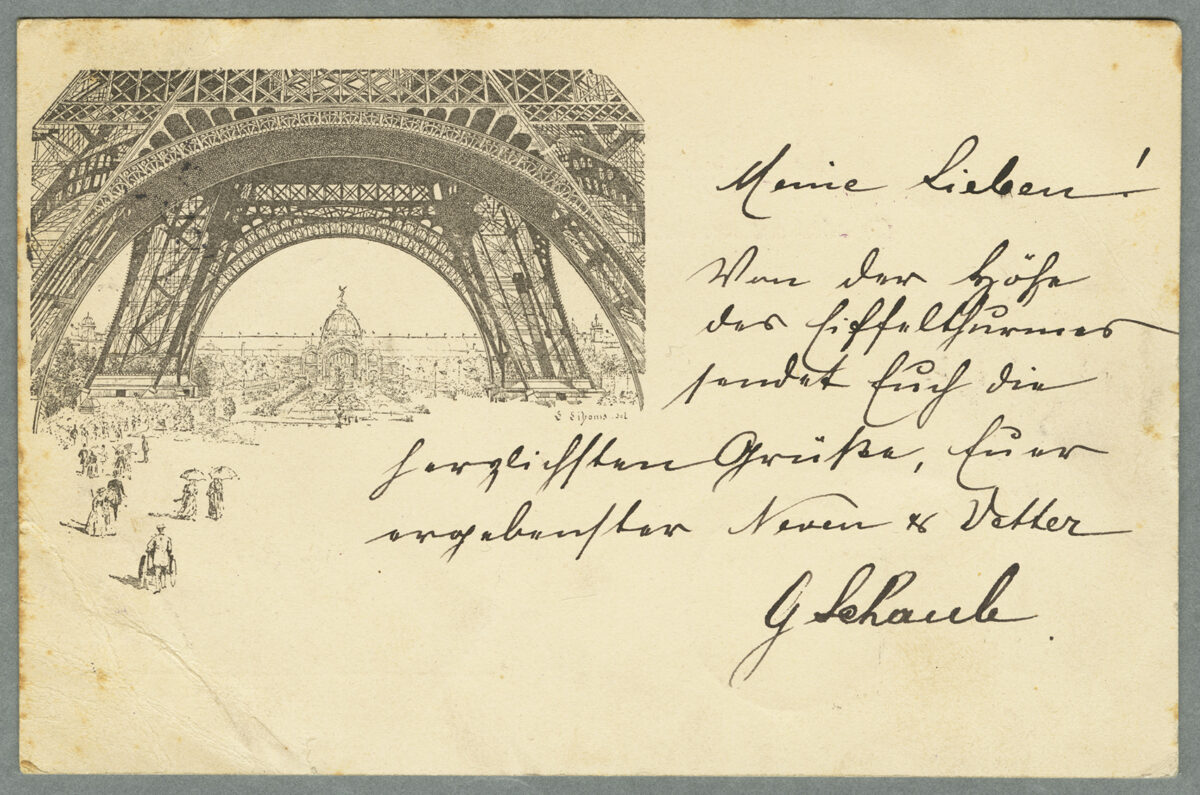 Meine Lieben!
Von der Höhe
des Eiffelthurmes
sendet Euch die
herzlichsten Grüße, Euer
ergebenster Neven & Vetter
G Schaub